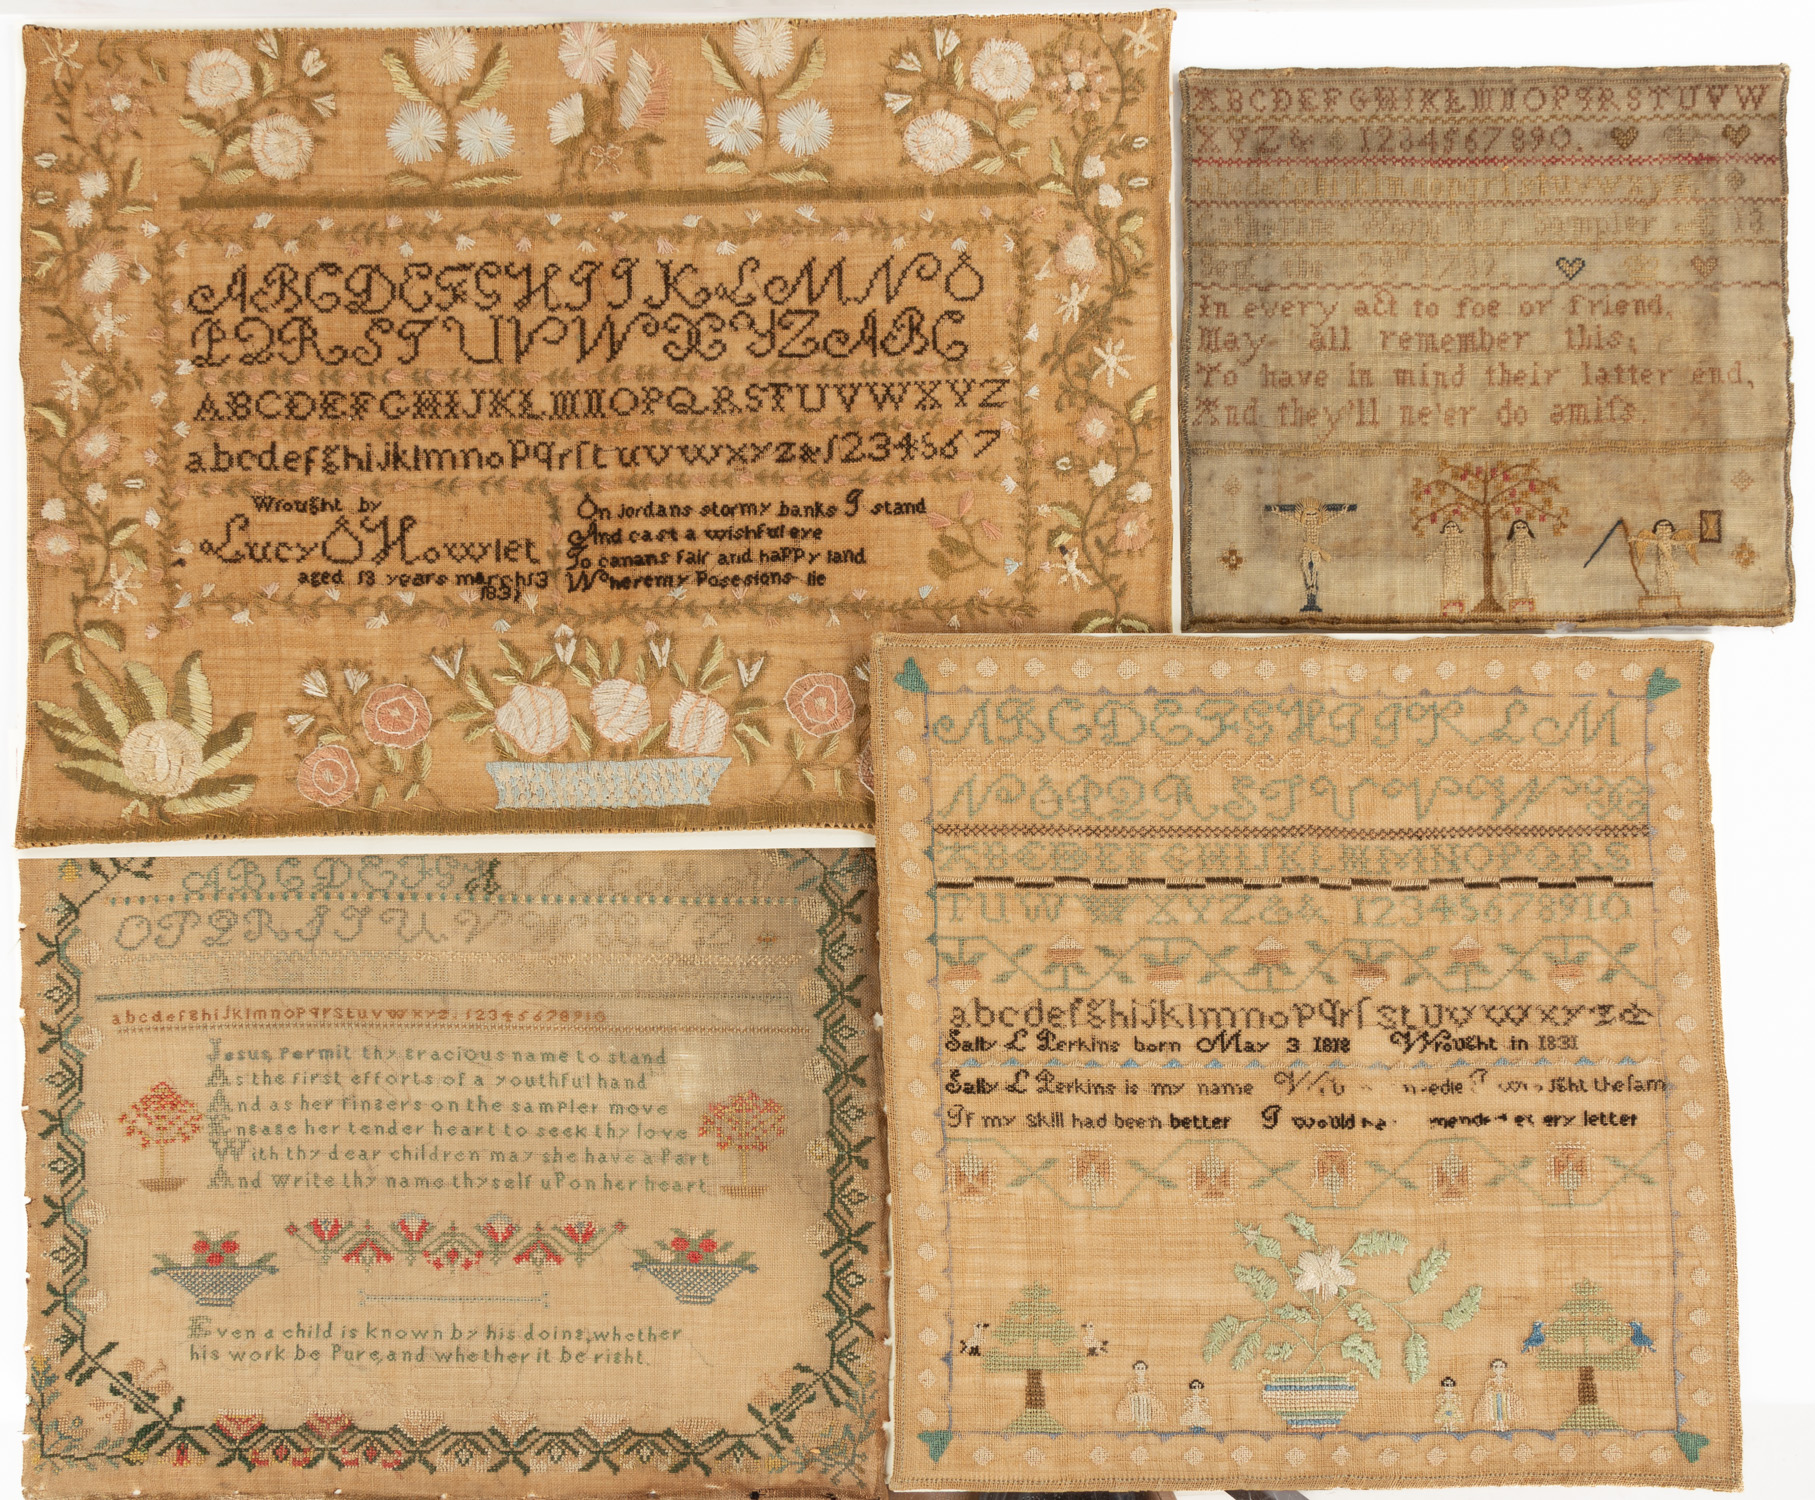 ABCDEFGHIJKLMNO
PQRSTUVWXYZABC
ABCDEFGHIJKLMNOPQRSTUVWXYZ
abcdefghijklmnopqrſtuvwxyz&1234567
Wrought by
Lucy O Howlet
aged 13 years march 13
183
On Jordans stormy banks I stand
And cast a wishful eye
To canans fair and happy land
Where my Posesions lie
ABCDEFGHIKLMNOPQRSTUVW
XYZ& 1234567890.
Sampler 13
In every act to foe or friend,
May all remember this;
To have in mind their latter end,
And they'll ne'er do amiſs.
ABCDEFGH
OPQRSTUV
abcdefghijklmnopqrstuvwxyz.12345678910
Jesus, Permit thy gracious name to stand
As the first efforts of a youthful hand
And as her fingers on the sampler move
Engage her tender heart to seek thy love
With thy dear children may she have a Part
And write thy name thyself upon her heart
Even a child is known by his doing,whether
his work be Pure,and whether it be right.
ABCDEFGHIJKLM
NOPQRSTUVWX
ABCDEFGHIJKLMNOPQRS
TUVWXYZ&& 12345678910
abcdefghijklmnopqrſstuvwxyz&
Sally L Perkins born May 3 1818 Wrought in 1831
Sally L Perkins is my name I wrought the sam
If my skill had been better I would every letter